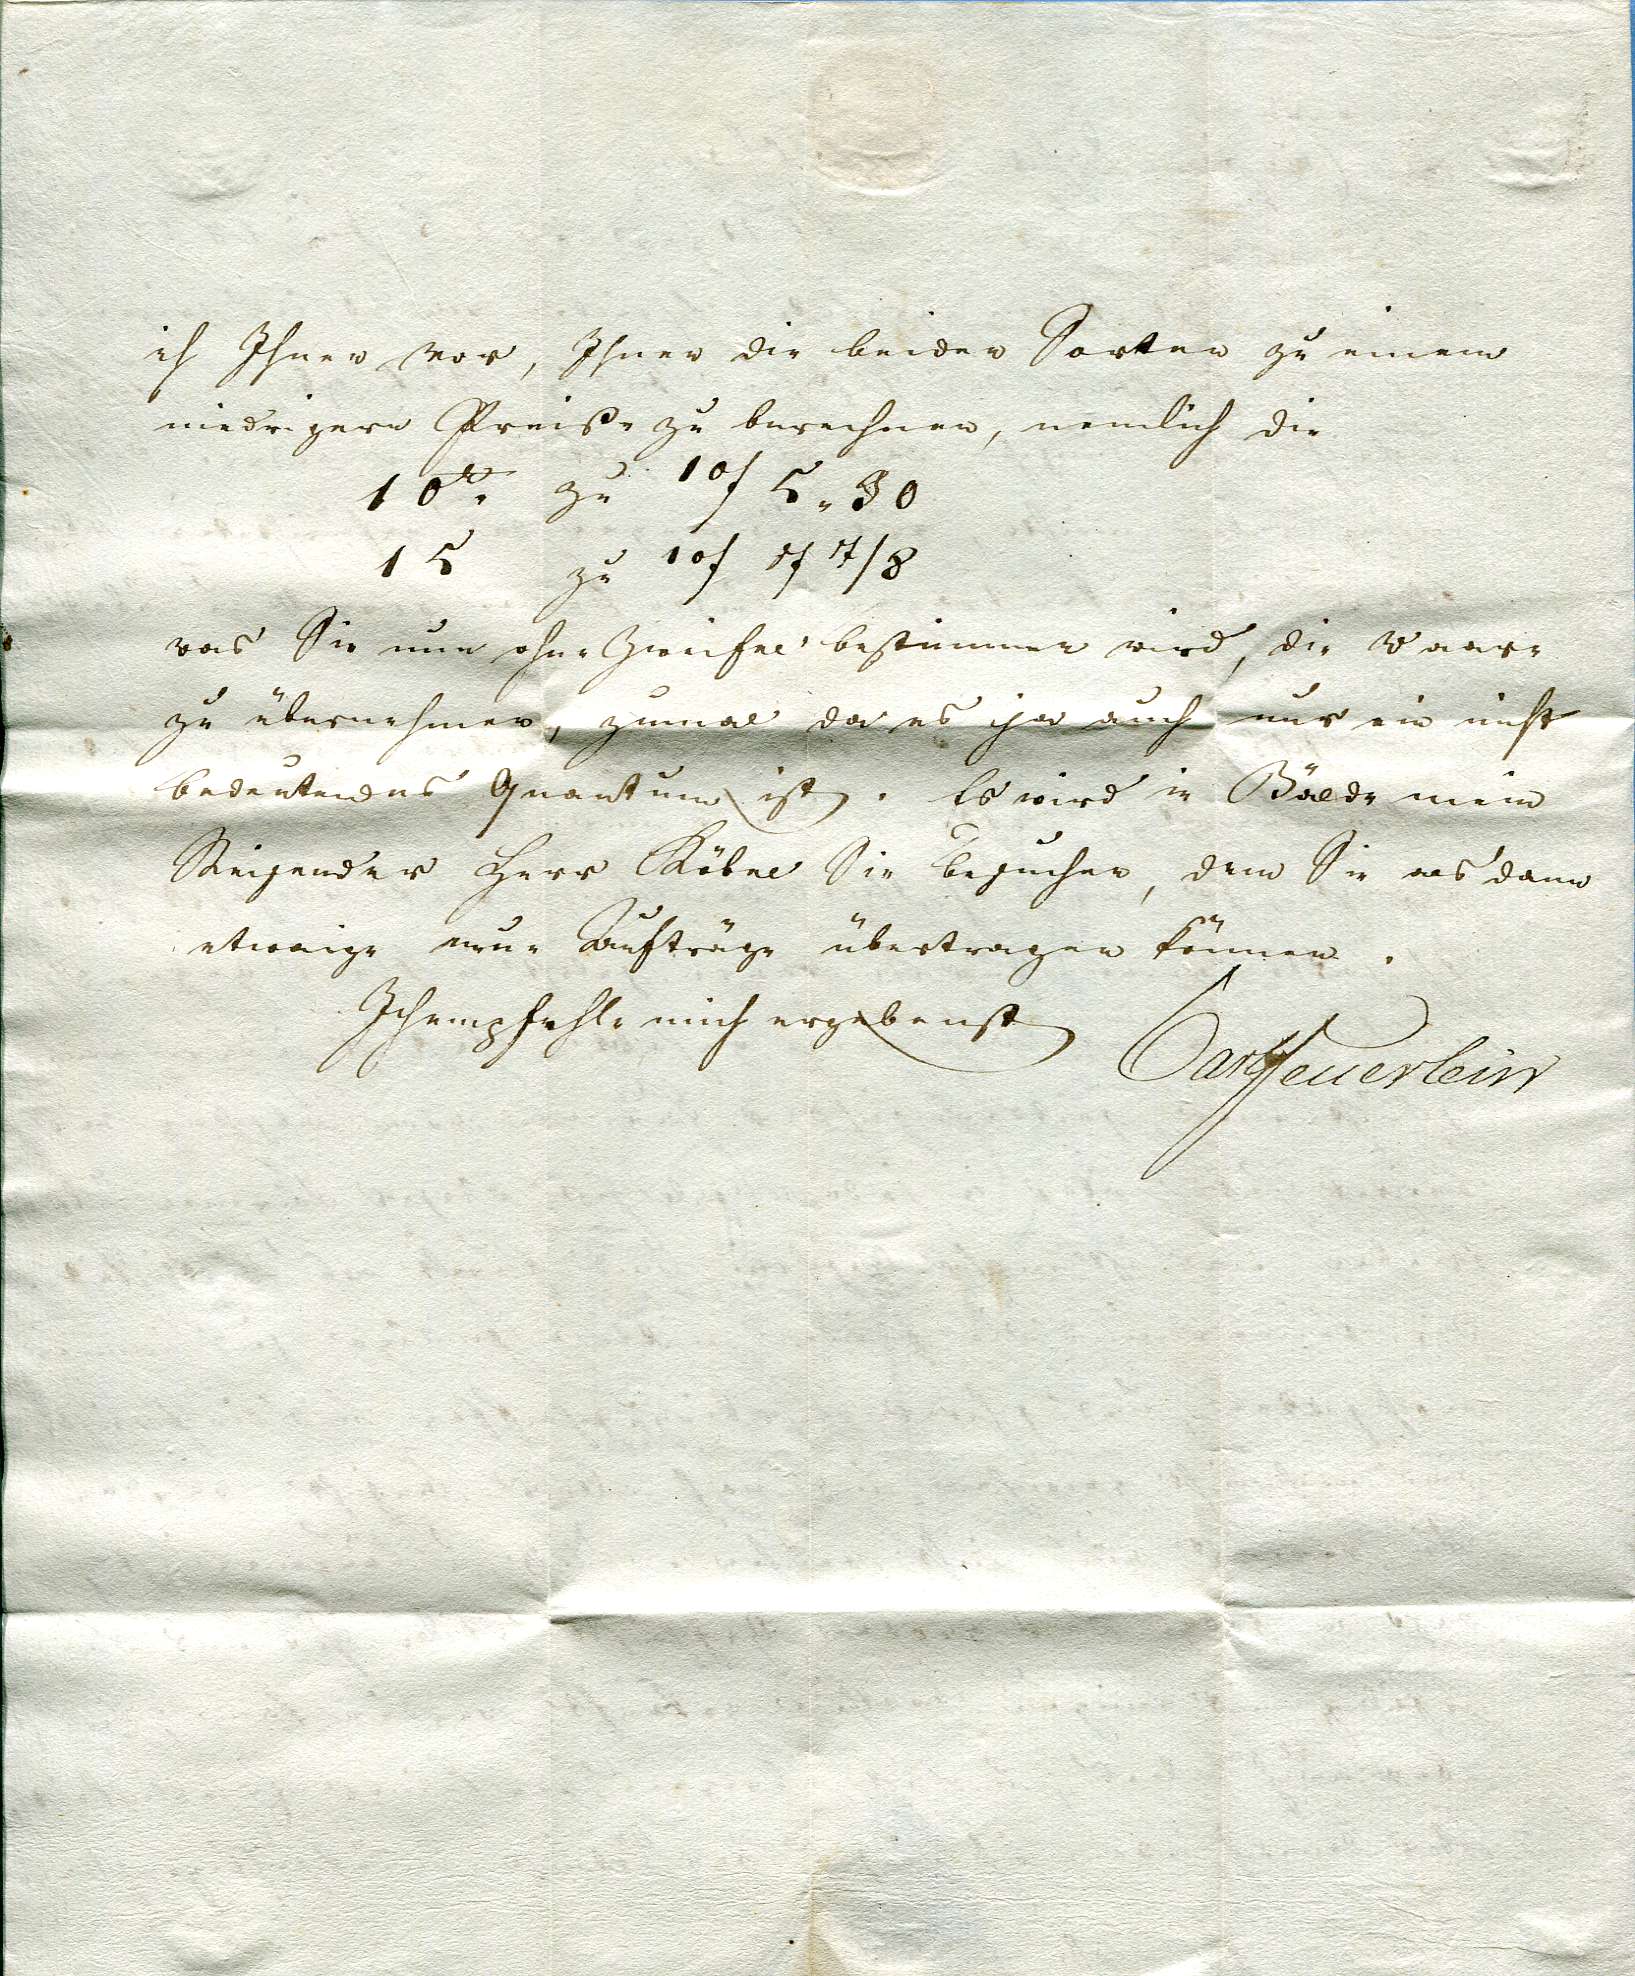 ich Ihnen vor, Ihnen die beiden Sorten zu einem
niedrigern Preiße zu berechnen, nemlich die
10r. zu 10/ 5 „ 30
15 zu 10/ 7/8
was Sie nun ohne Zweifel bestimmen wird, die Waare
zu übernehmen, zumal da es ja auch nur ein nicht
bedeutendes Quantum ist. Es wird in Bälde mein
Reisender Herr Köbel Sie besuchen, dem Sie alsdann
etwaige neue Aufträge übertragen können.
Ich empfehle mich ergebenst
Carl Feuerlein